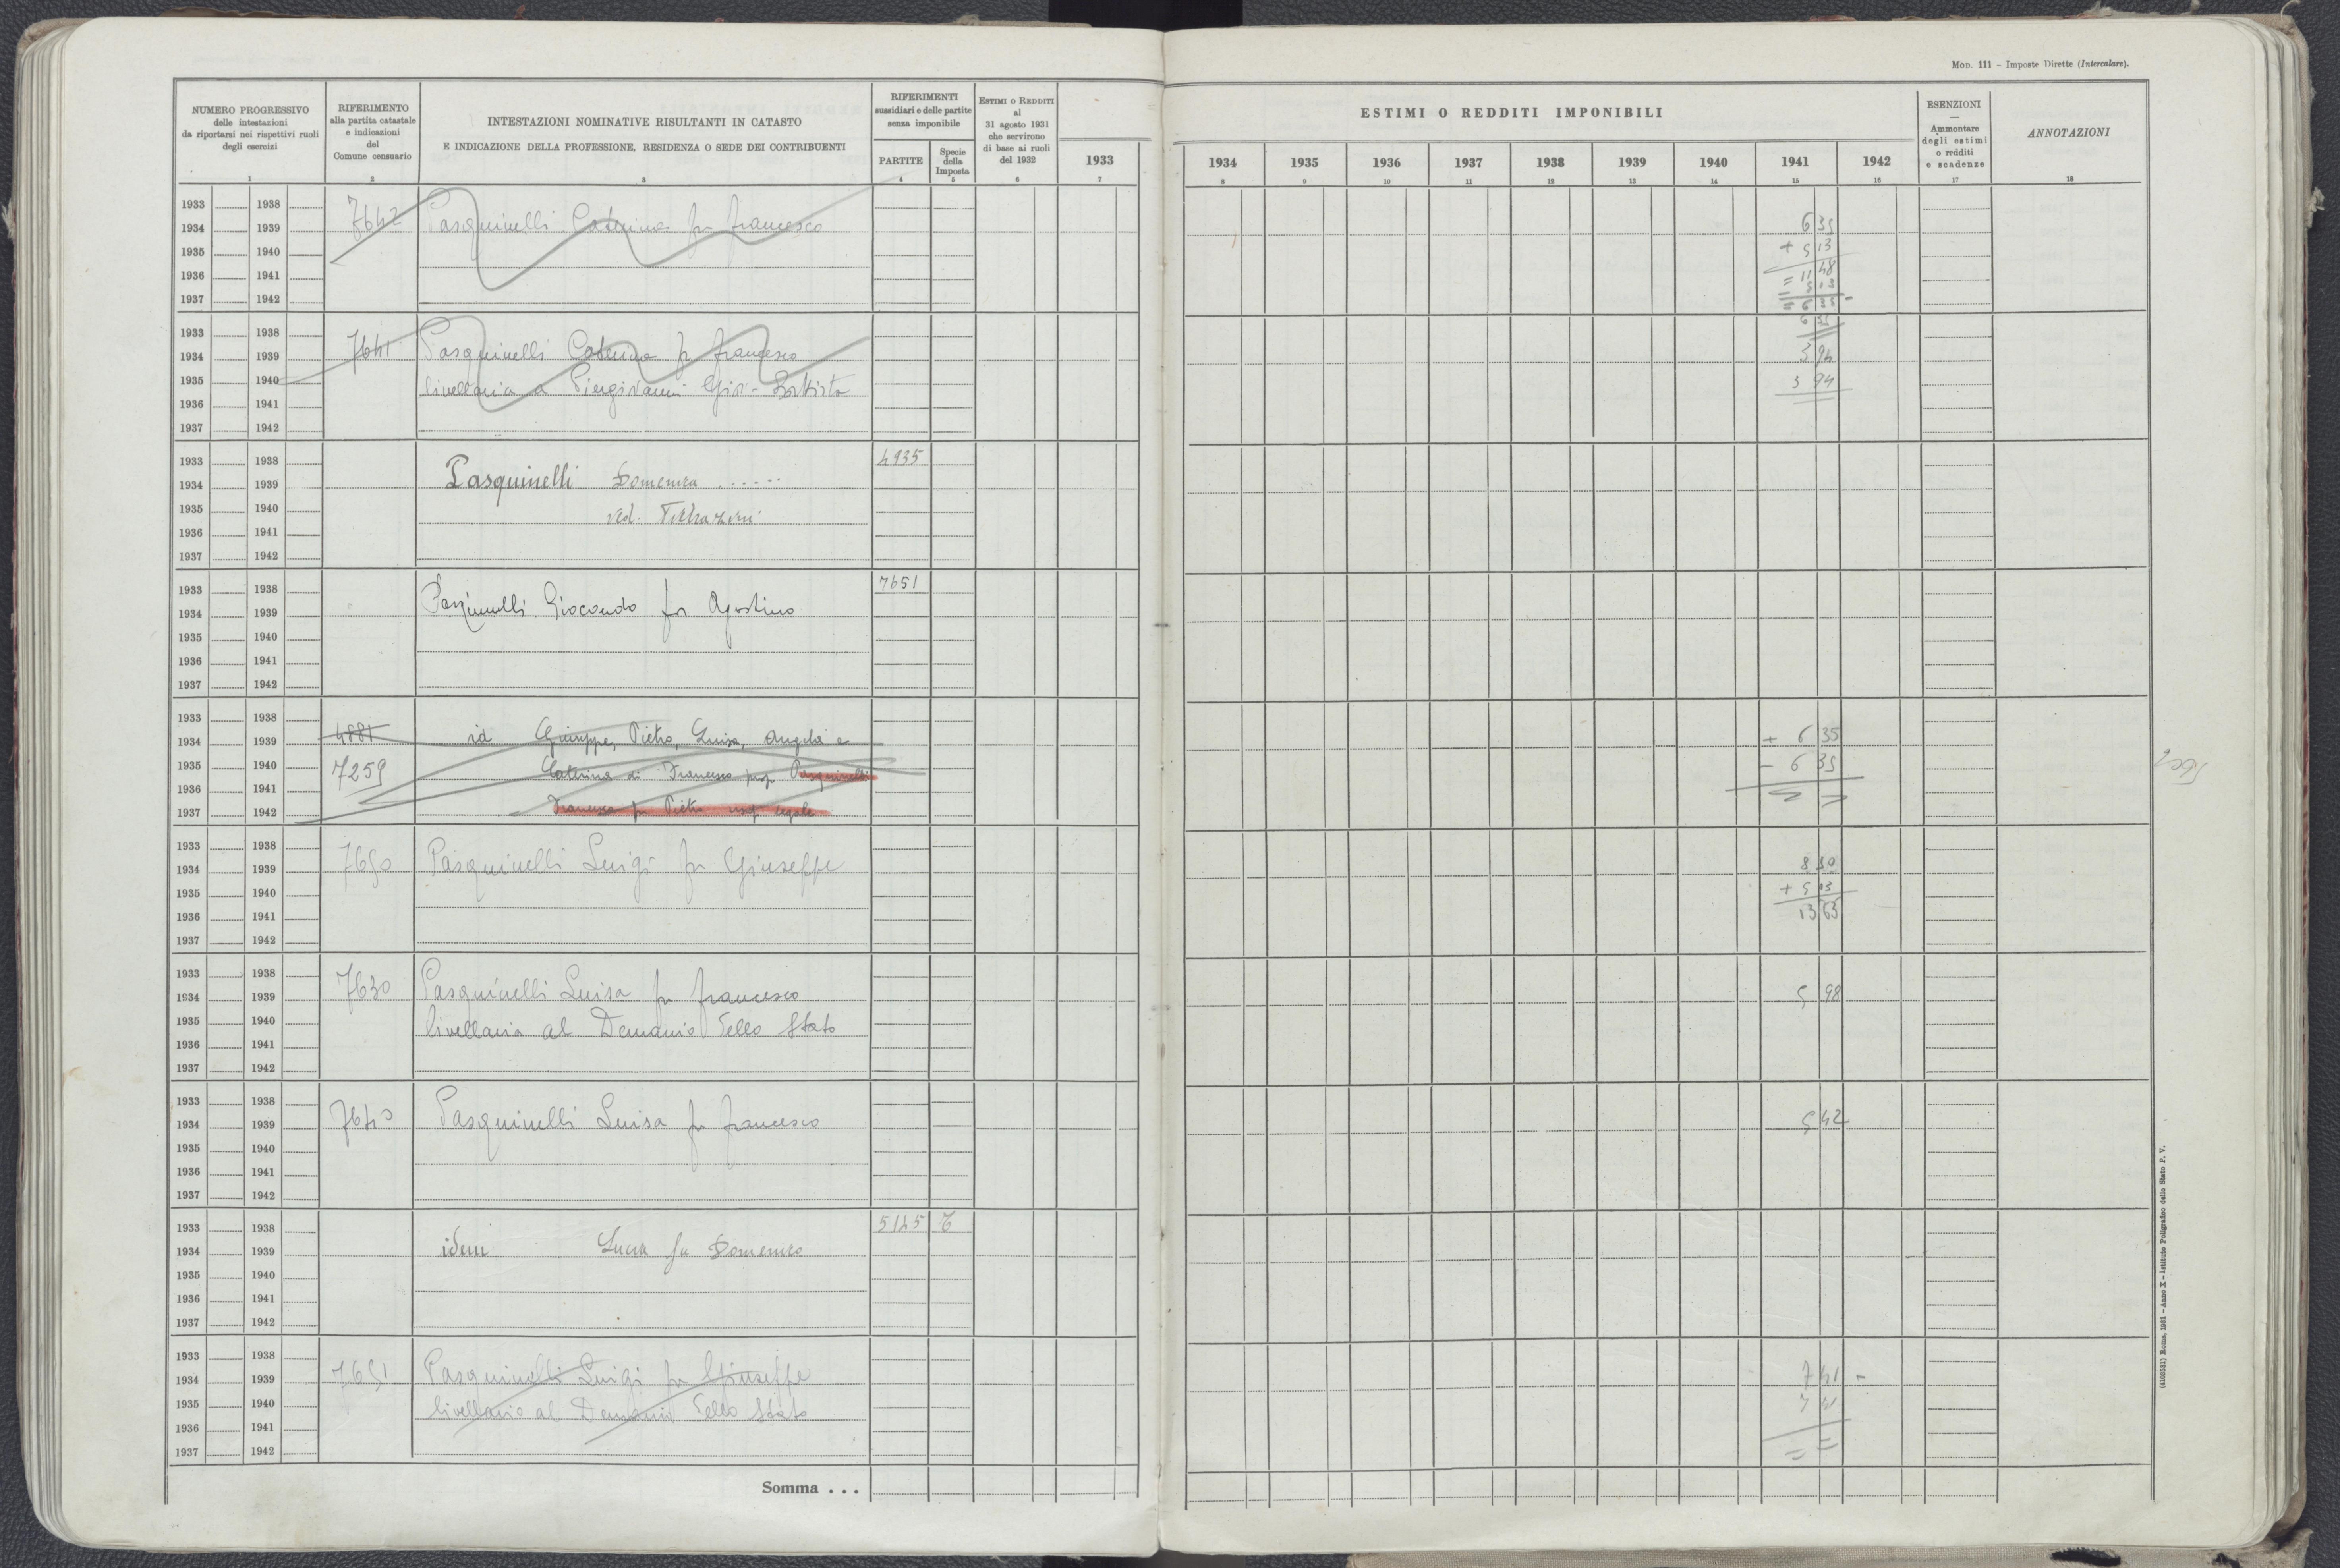 Mod. 111 – Imposte Dirette (Intercalare).
NUMERO PROGRESSIVO
delle intestazioni
da riportarsi nei rispettivi ruoli
degli esercizi
1
RIFERIMENTO
alla partita catastale
e indicazioni
del
Comune censuario
2
INTESTAZIONI NOMINATIVE RISULTANTI IN CATASTO
E INDICAZIONE DELLA PROFESSIONE, RESIDENZA O SEDE DEI CONTRIBUENTI
3
RIFERIMENTI
sussidiari e delle partite
senza imponibile
PARTITE
4
Specie
della
Imposta
5
ESTIMI O REDDITI
al
31 agosto 1931
che servirono
di base ai ruoli
del 1932
6
ESTIMI O REDDITI IMPONIBILI
1933 1934 1935 1936 1937 1938 1939 1940 1941 1942
7 8 9 10 11 12 13 14 15 16
ESENZIONI
—
Ammontare
degli estimi
o redditi
e scadenze
17
ANNOTAZIONI
18
1933 1938
1934 1939 7642 Pasquinelli Caterina fu Francesco 6 35
1935 1940 + 5 13
1936 1941 = 11 48
5 13
1937 1942 = 6 35 -
6 35
1933 1938
1934 1939 7641 Pasquinelli Caterina fu Francesco 3 94
1935 1940 livellaria a Piergiovanni Gio: Battista 3 94
1936 1941
1937 1942
1933 1938 4935
1934 1939 Pasquinelli Domenica ......
1935 1940 ved.
1936 1941
1937 1942
1933 1938 7651
1934 1939 Pasquinelli Giocondo fu Agostino
1935 1940
1936 1941
1937 1942
1933 1938 4881
1934 1939 id Giuseppe, Pietro, Luisa, Angela e + 6 35
1935 1940 7259 Caterina di Francesco prop. Pasquinelli - 6 35
1936 1941
1937 1942 Francesco fu Pietro usuf legale = =
1933 1938
1934 1939 7650 Pasquinelli Luigi fu Giuseppe 8 50
1935 1940 + 5 13
1936 1941 13 63
1937 1942
1933 1938
1934 1939 7630 Pasquinelli Luisa fu Francesco 5 98
1935 1940 livellaria al Demanio dello Stato
1936 1941
1937 1942
1933 1938
1934 1939 7640 Pasquinelli Luisa fu Francesco 5 42
1935 1940
1936 1941
1937 1942
1933 1938 5145 T
1934 1939 idem Lucia fu Domenico
1935 1940
1936 1941
1937 1942
1933 1938
1934 1939 7651 Pasquinelli Luigi fu Giuseppe 7 41 -
1935 1940 livellario al Demanio dello Stato 7 41
1936 1941
1937 1942 = =
Somma . . .
(4100531) Roma, 1931 – Anno X – Istituto Poligrafico dello Stato P. V.